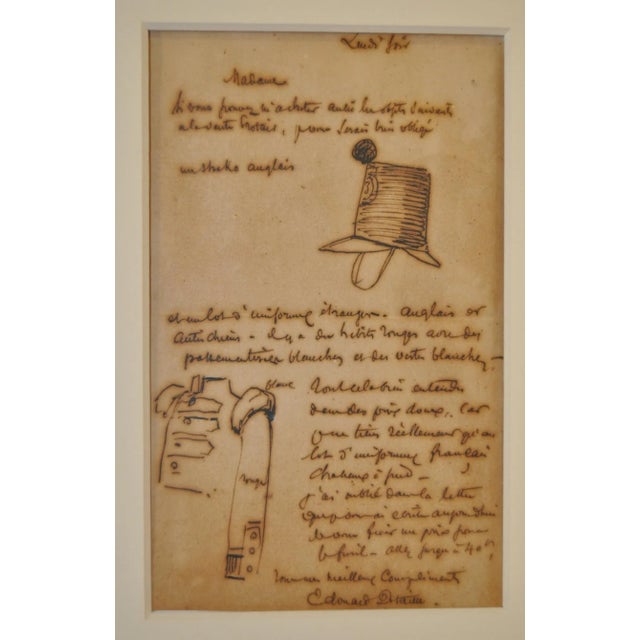 Lundi soir
Madame
Si vous pouvez m'acheter les objets suivants
à la vente Protais, vous serais bien obligé
un shako anglais
et un lot d'uniformes étrangers - anglais et
autrichiens - il y a des habits rouges avec des
passementeries blanches et des vestes blanches -
blanc
Tout cela bien entendu
dans des prix doux, car
je ne tiens réellement qu'au
lot d'uniformes français
chapeaux à pied -
rouge
j'ai oublié dans la lettre
que je vous ai écrite aujourd'hui
de vous fixer un prix pour
le fusil - allez jusqu'à 40f
Tous mes meilleurs compliments
Edouard Detaille